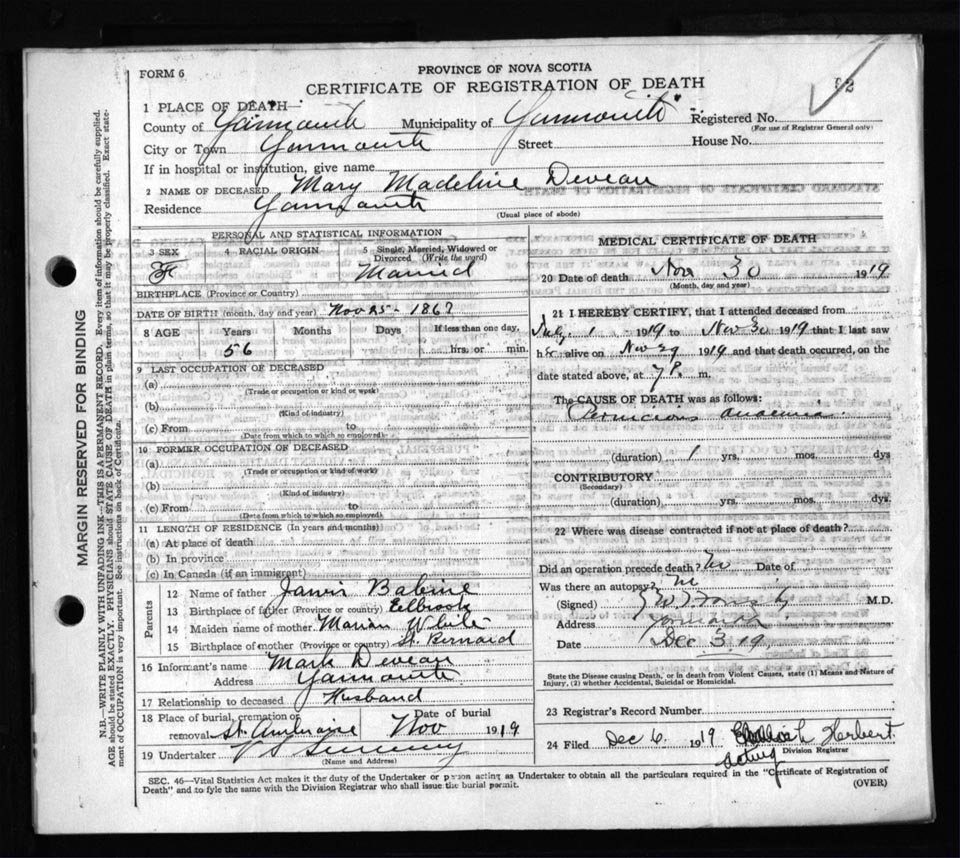 FORM 6
PROVINCE OF NOVA SCOTIA
CERTIFICATE OF REGISTRATION OF DEATH
92
1 PLACE OF DEATH—
County of Yarmouth Municipality of Yarmouth Registered No.
(For use of Registrar General only)
City or Town Yarmouth Street House No.
If in hospital or institution, give name
2 NAME OF DECEASED Mary Madeline Deveau
Residence Yarmouth
(Usual place of abode)
PERSONAL AND STATISTICAL INFORMATION
3 SEX 4 RACIAL ORIGIN 5 Single, Married, Widowed or Divorced (Write the word)
F Married
BIRTHPLACE (Province or Country)
DATE OF BIRTH (month, day and year) Nov 25 - 1867
8 AGE Years Months Days If less than one day,
56 hrs. or min.
9 LAST OCCUPATION OF DECEASED
(a)
(Trade or occupation or kind of work)
(b)
(Kind of industry)
(c) From to
(Date from which to which so employed)
10 FORMER OCCUPATION OF DECEASED
(a)
(Trade or occupation or kind of work)
(b)
(Kind of industry)
(c) From to
(Date from which to which so employed)
11 LENGTH OF RESIDENCE (In years and months)
(a) At place of death
(b) In province
(c) In Canada (if an immigrant)
Parents
12 Name of father Jarvis Babine
13 Birthplace of father (Province or country) Eelbrook
14 Maiden name of mother Marian White
15 Birthplace of mother (Province or country) St. Bernard
16 Informant's name Mark Deveau
Address Yarmouth
17 Relationship to deceased Husband
18 Place of burial, cremation or removal St. Ambroise Date of burial Nov 1919
19 Undertaker V S Sweeney
(Name and Address)
MEDICAL CERTIFICATE OF DEATH
20 Date of death Nov 30 1919
(Month, day and year)
21 I HEREBY CERTIFY, that I attended deceased from
July 1 1919 to Nov 30 1919 that I last saw
her alive on Nov 29 1919 and that death occurred, on the
date stated above, at 7 P. m.
The CAUSE OF DEATH was as follows:
Pernicious anaemia
(duration) 1 yrs. mos. dys
CONTRIBUTORY
(Secondary)
(duration) yrs. mos. dys.
22 Where was disease contracted if not at place of death?
Did an operation precede death? No Date of
Was there an autopsy? No
(Signed) M.D.
Address Yarmouth
Date Dec 3 19
State the Disease causing Death, or in death from Violent Causes, state (1) Means and Nature of
Injury, (2) whether Accidental, Suicidal or Homicidal.
23 Registrar's Record Number
24 Filed Dec 6. 1919 Herbert
Acting Division Registrar
SEC. 46—Vital Statistics Act makes it the duty of the Undertaker or person acting as Undertaker to obtain all the particulars required in the "Certificate of Registration of
Death" and to fyle the same with the Division Registrar who shall issue the burial permit.
(OVER)
MARGIN RESERVED FOR BINDING
N.B.—WRITE PLAINLY WITH UNFADING INK—THIS IS A PERMANENT RECORD. Every item of information should be carefully supplied.
AGE should be stated EXACTLY. PHYSICIANS should STATE CAUSE OF DEATH in plain terms, so that it may be properly classified. Exact state-
ment of OCCUPATION is very important. See instructions on back of Certificate.